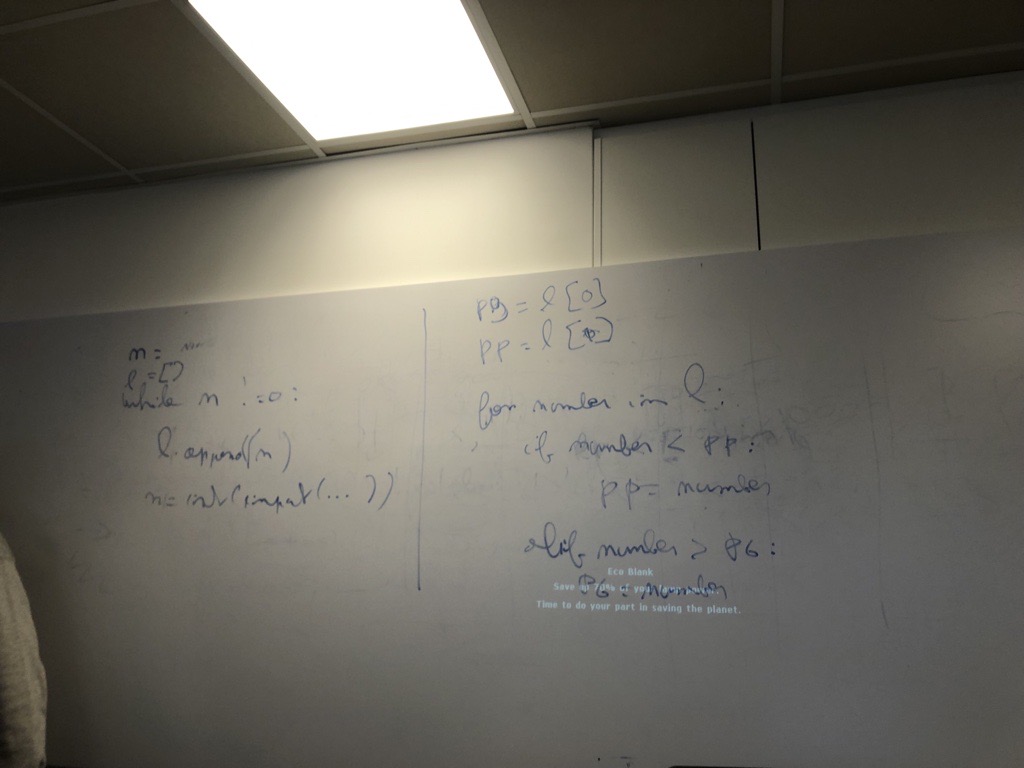 n =
l = []
while n != 0:
l.append(n)
n = int(input(...))
PG = l[0]
PP = l[0]
for number in l:
if number < PP:
PP = number
elif number > PG:
PG = number
Eco Blank
Save of your
Time to do your part in saving the planet.